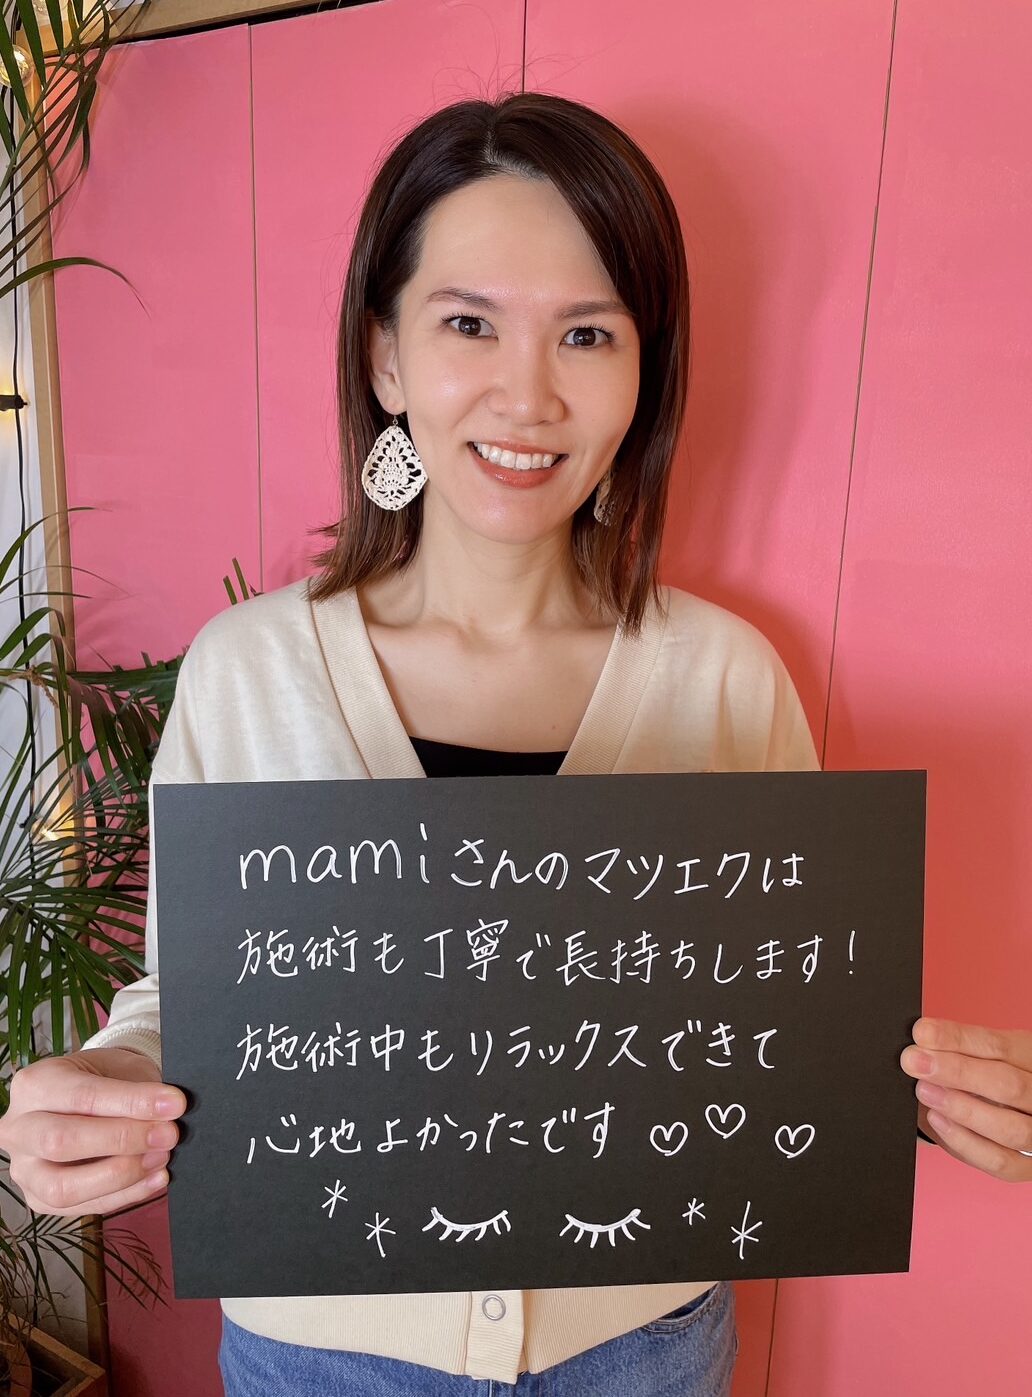 mamiさんのマツエクは
施術も丁寧で長持ちします!
施術中もリラックスできて
心地よかったです♡♡♡